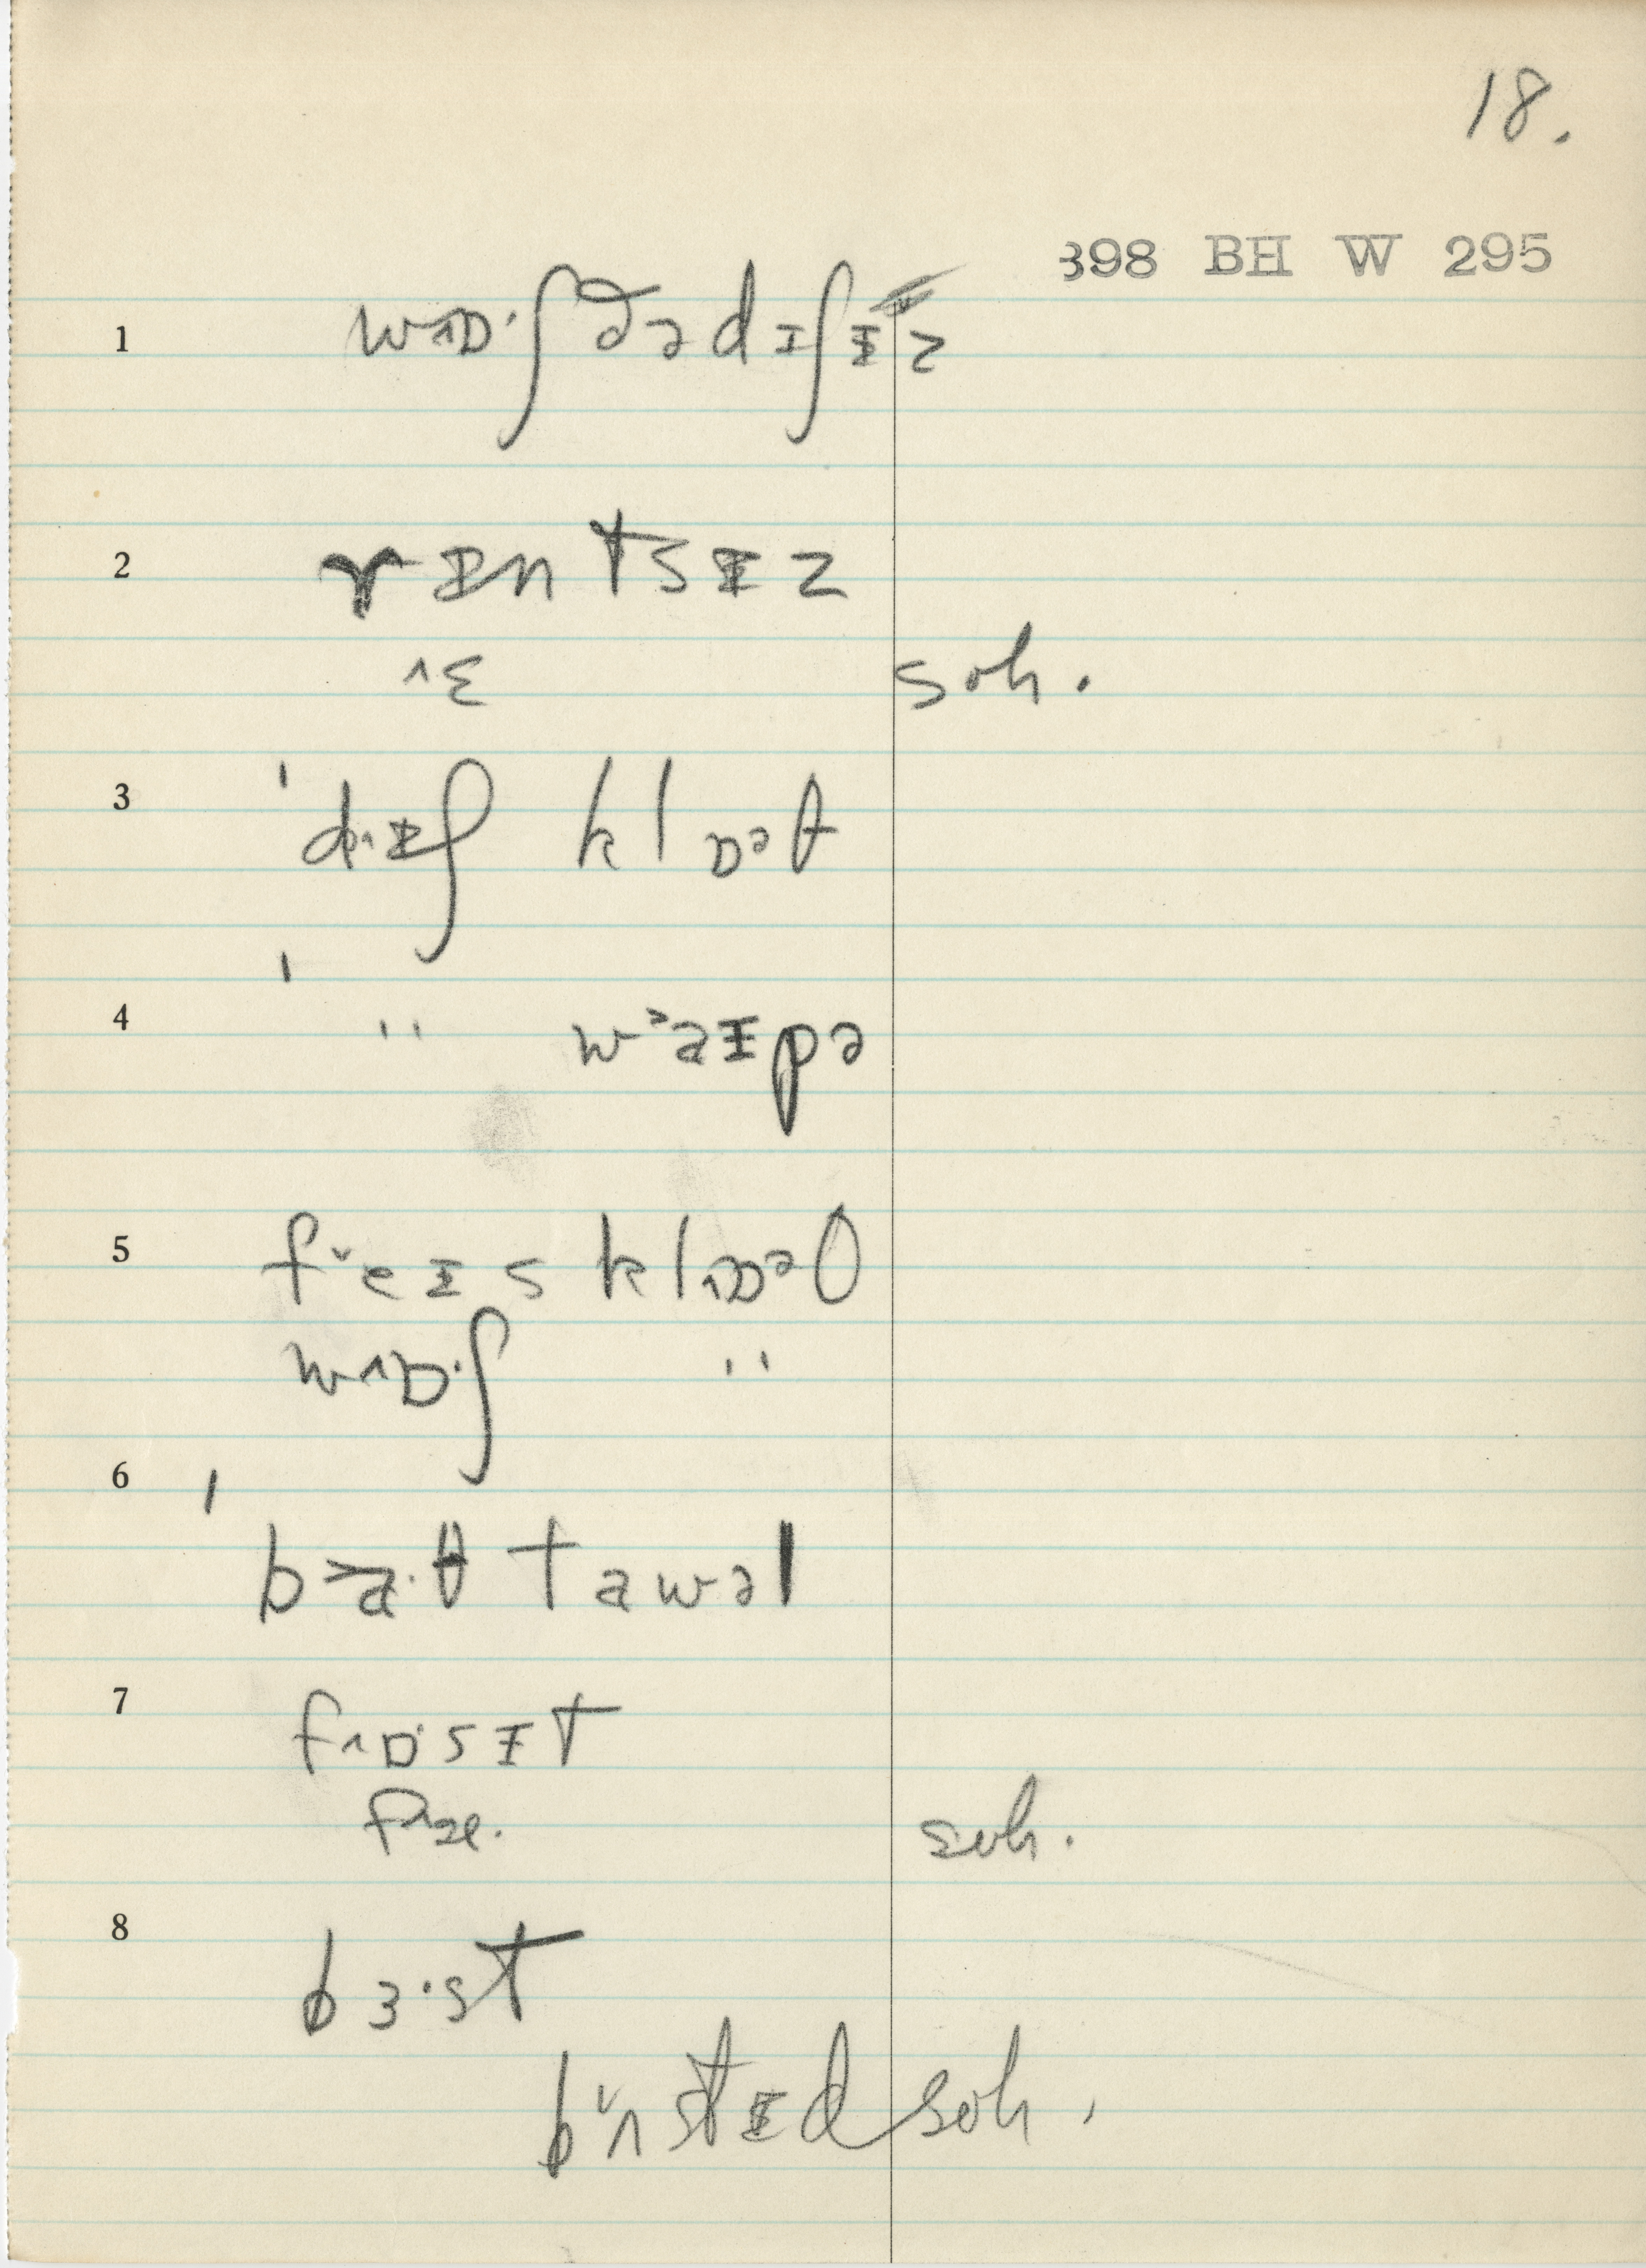 18.
398 BH W 295
1 w^ɒ·ʃ ðə dɪʃɪz
2 rɪntsɪz
^ɛ soh.
3 'dɪʃ klɒəθ
4 ' '' w˃aɪpə
5 fˇeɪs kl^ɒəθ
w^ɒ·ʃ ''
6 ' b˃a·θ tawəl
7 f^ɒsɪt
f^æ. soh.
8 bɜ·st
bˇʌstɪd soh.